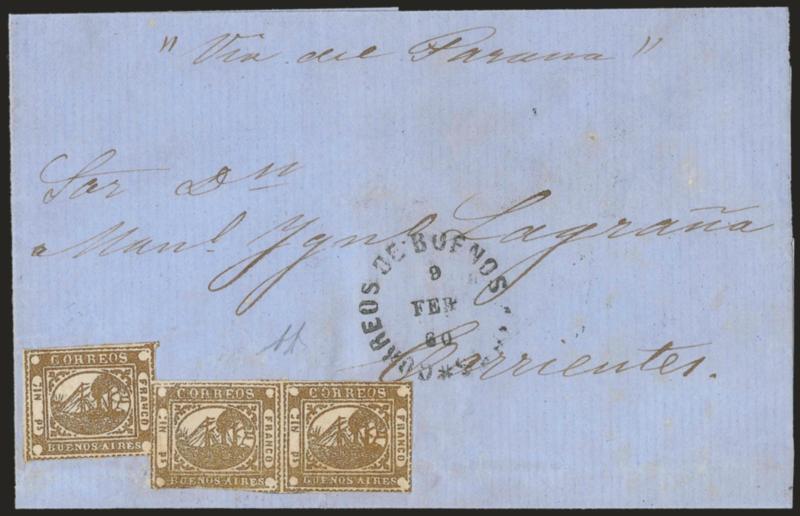 "Via del Parana"
Sor Dn
Manl Ygno Lagraña
Corrientes.
CORREOS DE BUENOS
9
FEB
60
CORREOS
FRANCO
BUENOS AIRES
IN Ps
CORREOS
FRANCO
BUENOS AIRES
IN Ps
CORREOS
FRANCO
BUENOS AIRES
IN Ps